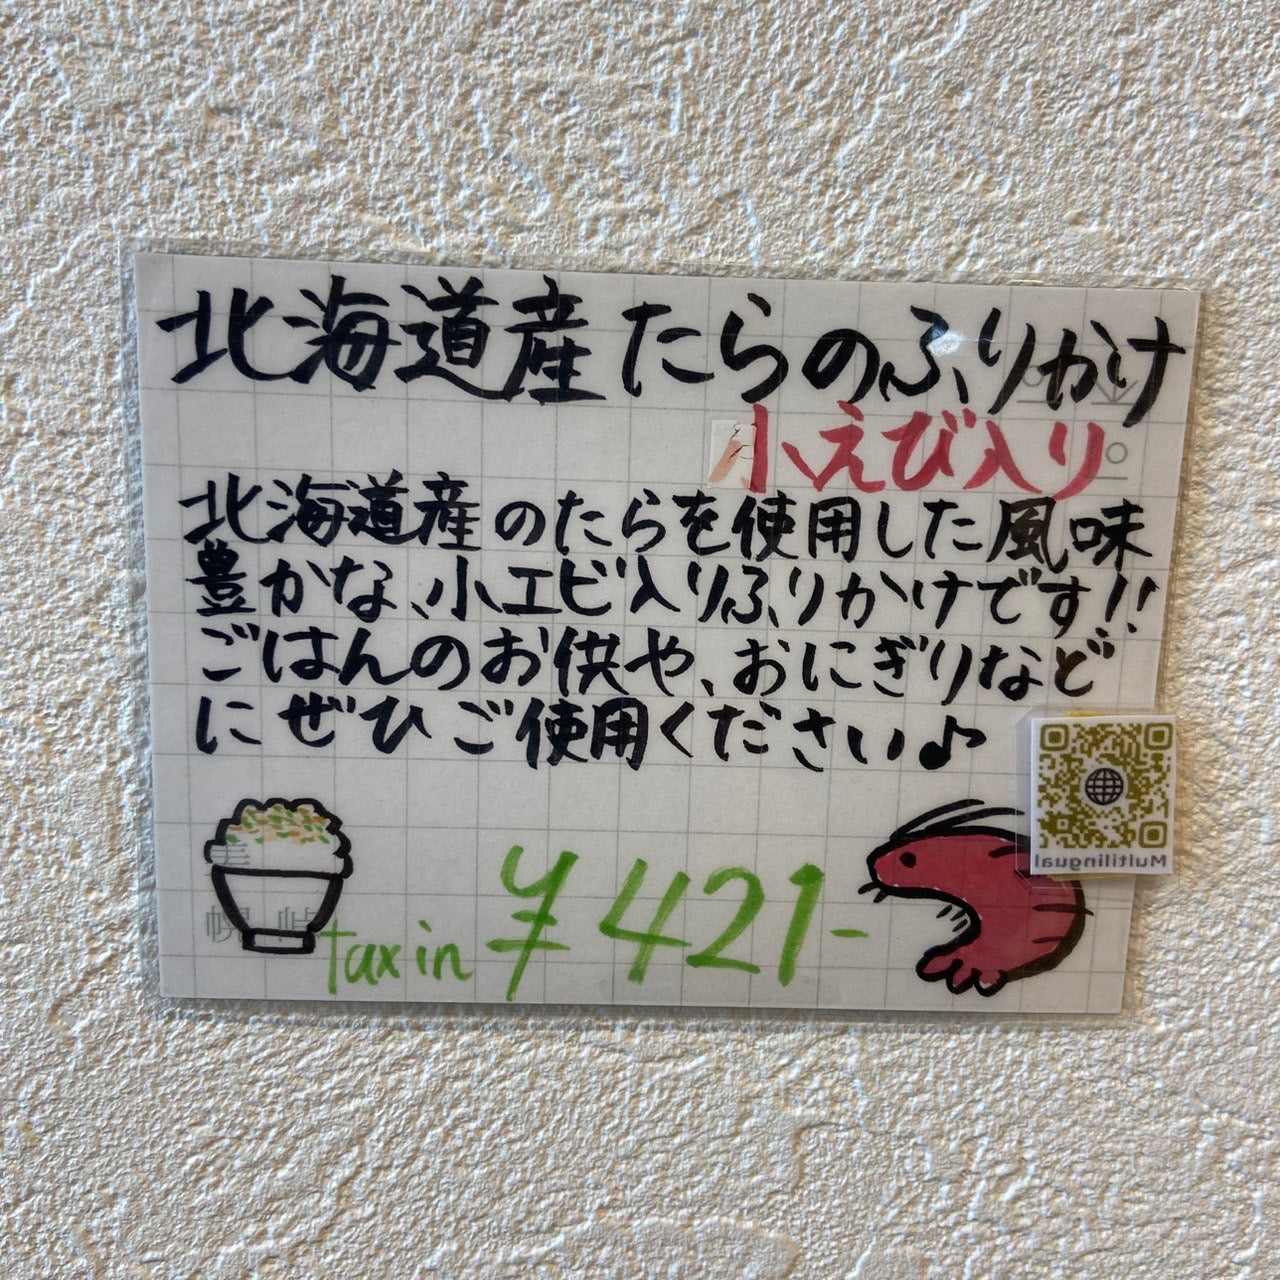 北海道産たらのふりかけ
小えび入り
北海道産のたらを使用した風味
豊かな、小エビ入りふりかけです!!
ごはんのお供や、おにぎりなど
にぜひご使用ください♪
tax in ¥421-
Multilingual